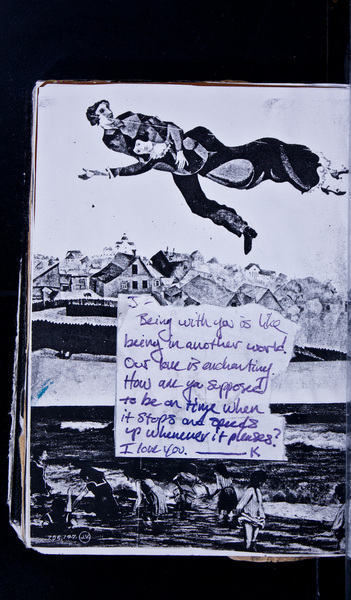 J-
Being with you is like
being in another world.
Our love is enchanting.
How are you supposed
to be on time when
it stops and speeds
up whenever it pleases?
I love you. ——— K
JV